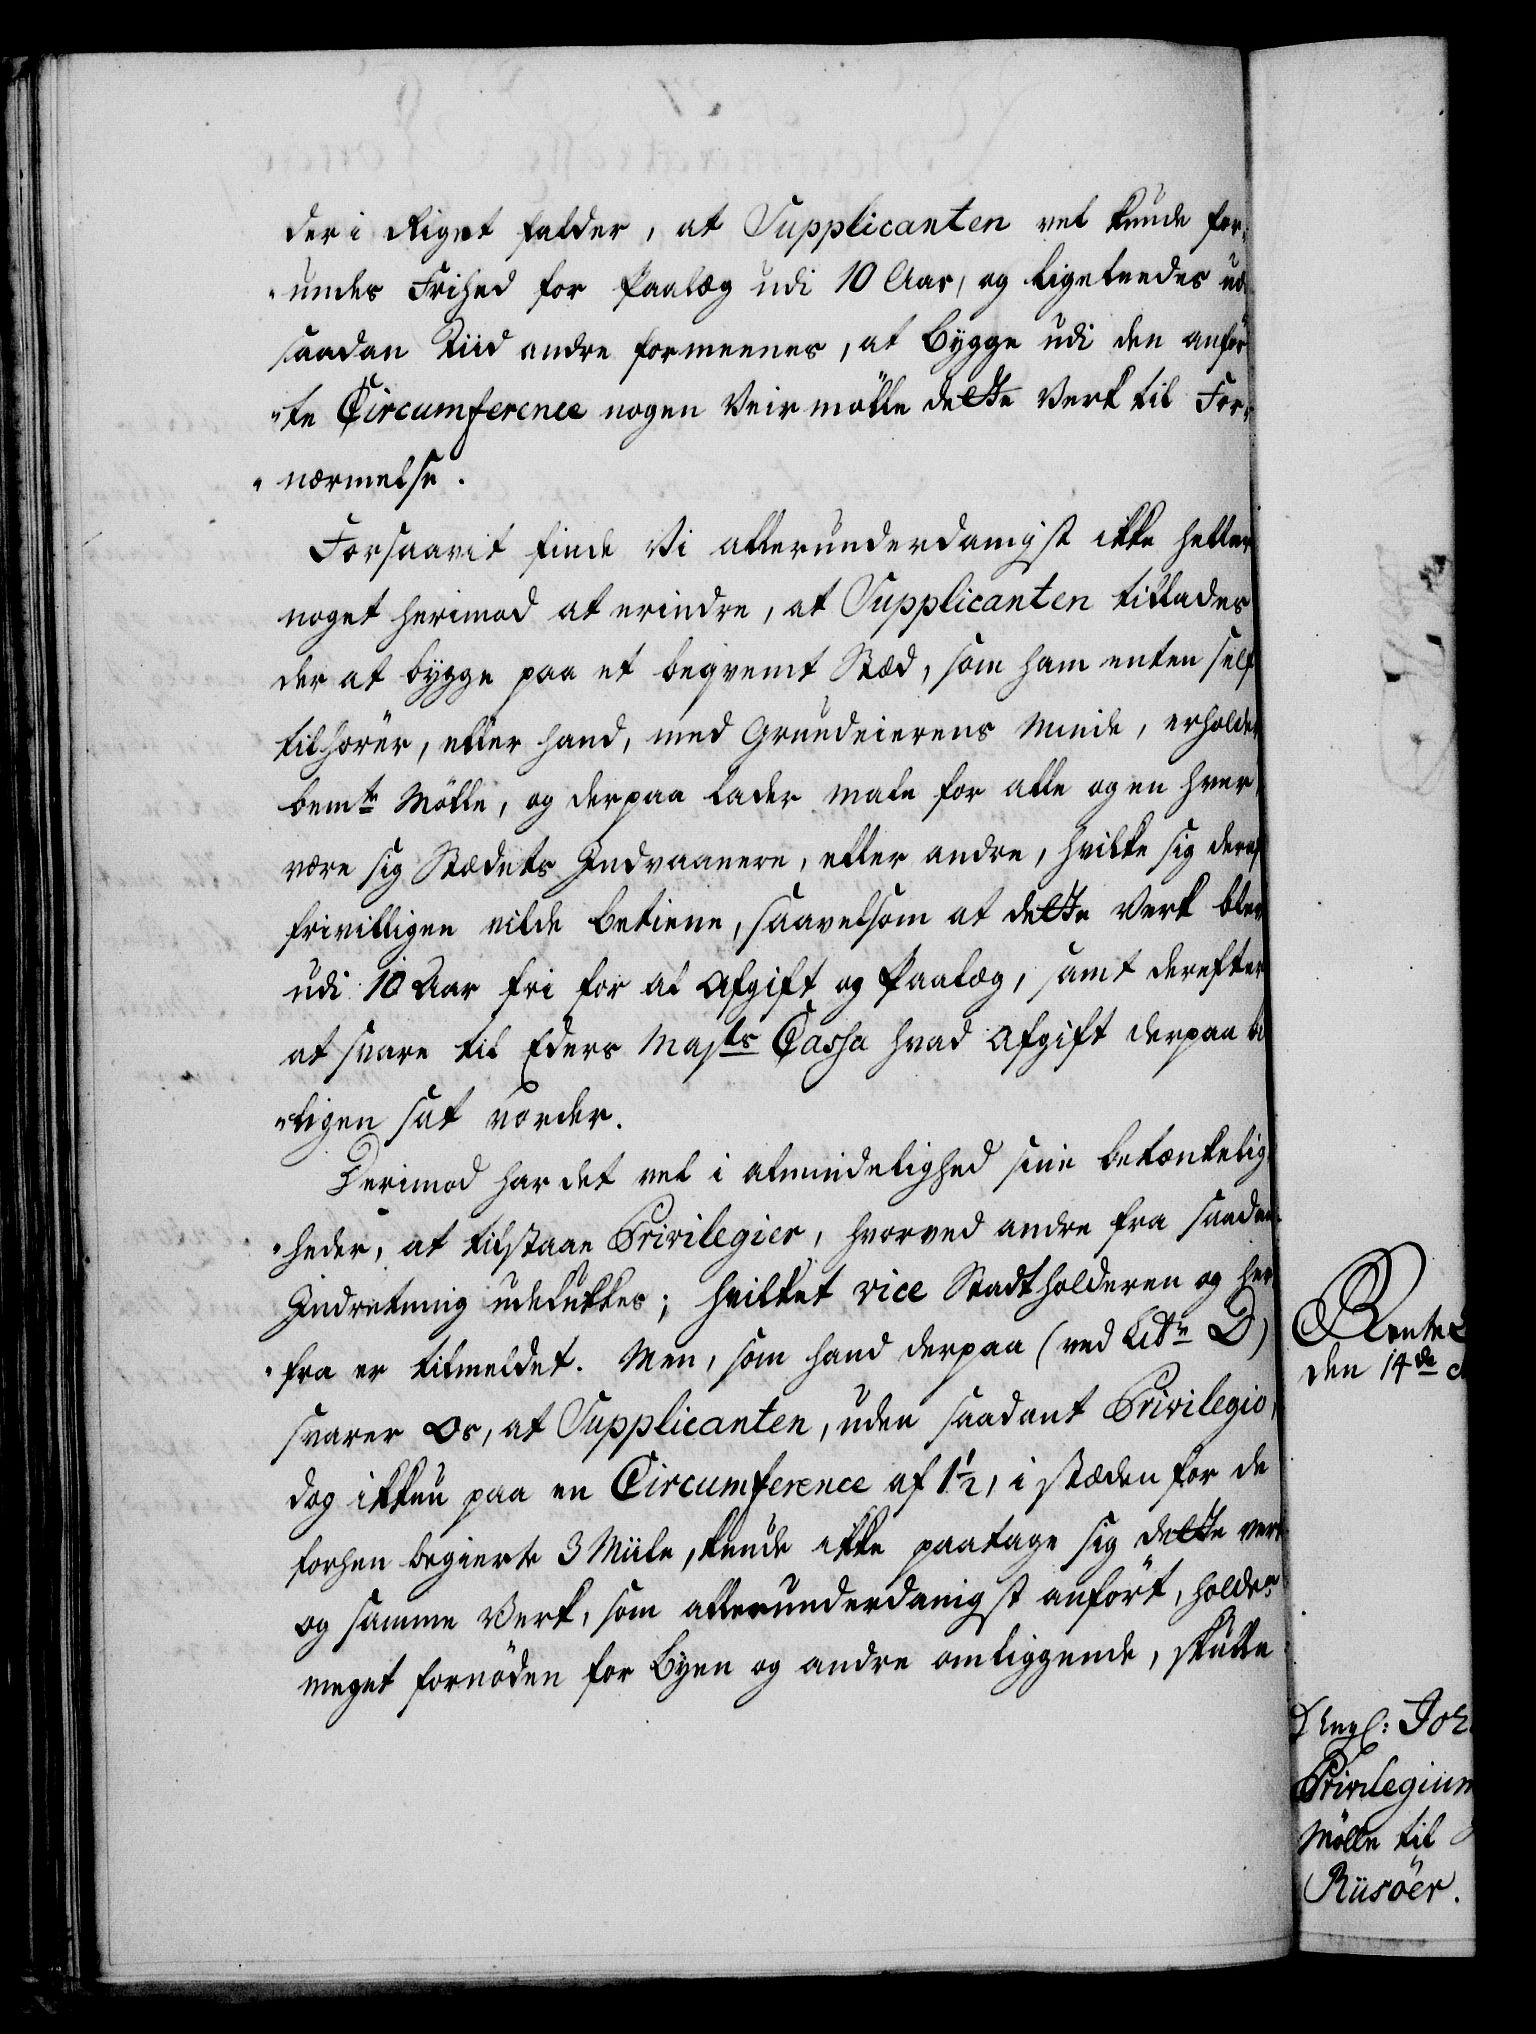 der i Riget falder, at Supplicanten vel kunde for-
"undes Frihed for Paalæg udi 10 Aar, og ligeleedes ud
saadan Tiid andre formeenes, at bygge udi den anfør
"te Circumference nogen Veirmölle dette Verk til For-
"nærmelse.
Forsaavit finde Vi allerunderdanigst ikke heller
noget herimod at erindre, at Supplicanten tillades
der at bygge paa et beqvemt Stæd, som ham enten self
tilhörer, eller hand, med Grundeierens Minde, erholder
bemte Mölle, og derpaa lader male for alle og en hver,
være sig Stædets Indvaanere, eller andre, hvilke sig deraf
frivilligen vilde betiene, saavelsom at dette Verk blev
udi 10 Aar fri for al Afgift og Paalæg, samt derefter
at svare til Eders Majts Cassa hvad Afgift derpaa bi
"ligen sat vorder.
Derimod har det vel i almindelighed sine betænkelig-
"heder, at tilstaae Privilegier, hvorved andre fra saadan
Indretning udelukkes; hvilket vice Stadtholderen og her
"fra er tilmeldet. Men, som hand derpaa (ved Litr D)
svarer Os, at Supplicanten, uden saadant Privilegio,
dog ikkun paa en Circumference af 1½, i stæden for de
forhen begierte 3 Miile, kunde ikke paatage sig dette verk
og samme Verk, som allerunderdanigst anfört, holdes
meget fornöden for Byen og andre omliggende, skulle
Rente
den 14de
Engl: Joh
Privilegium
Mölle til
Riisöer.